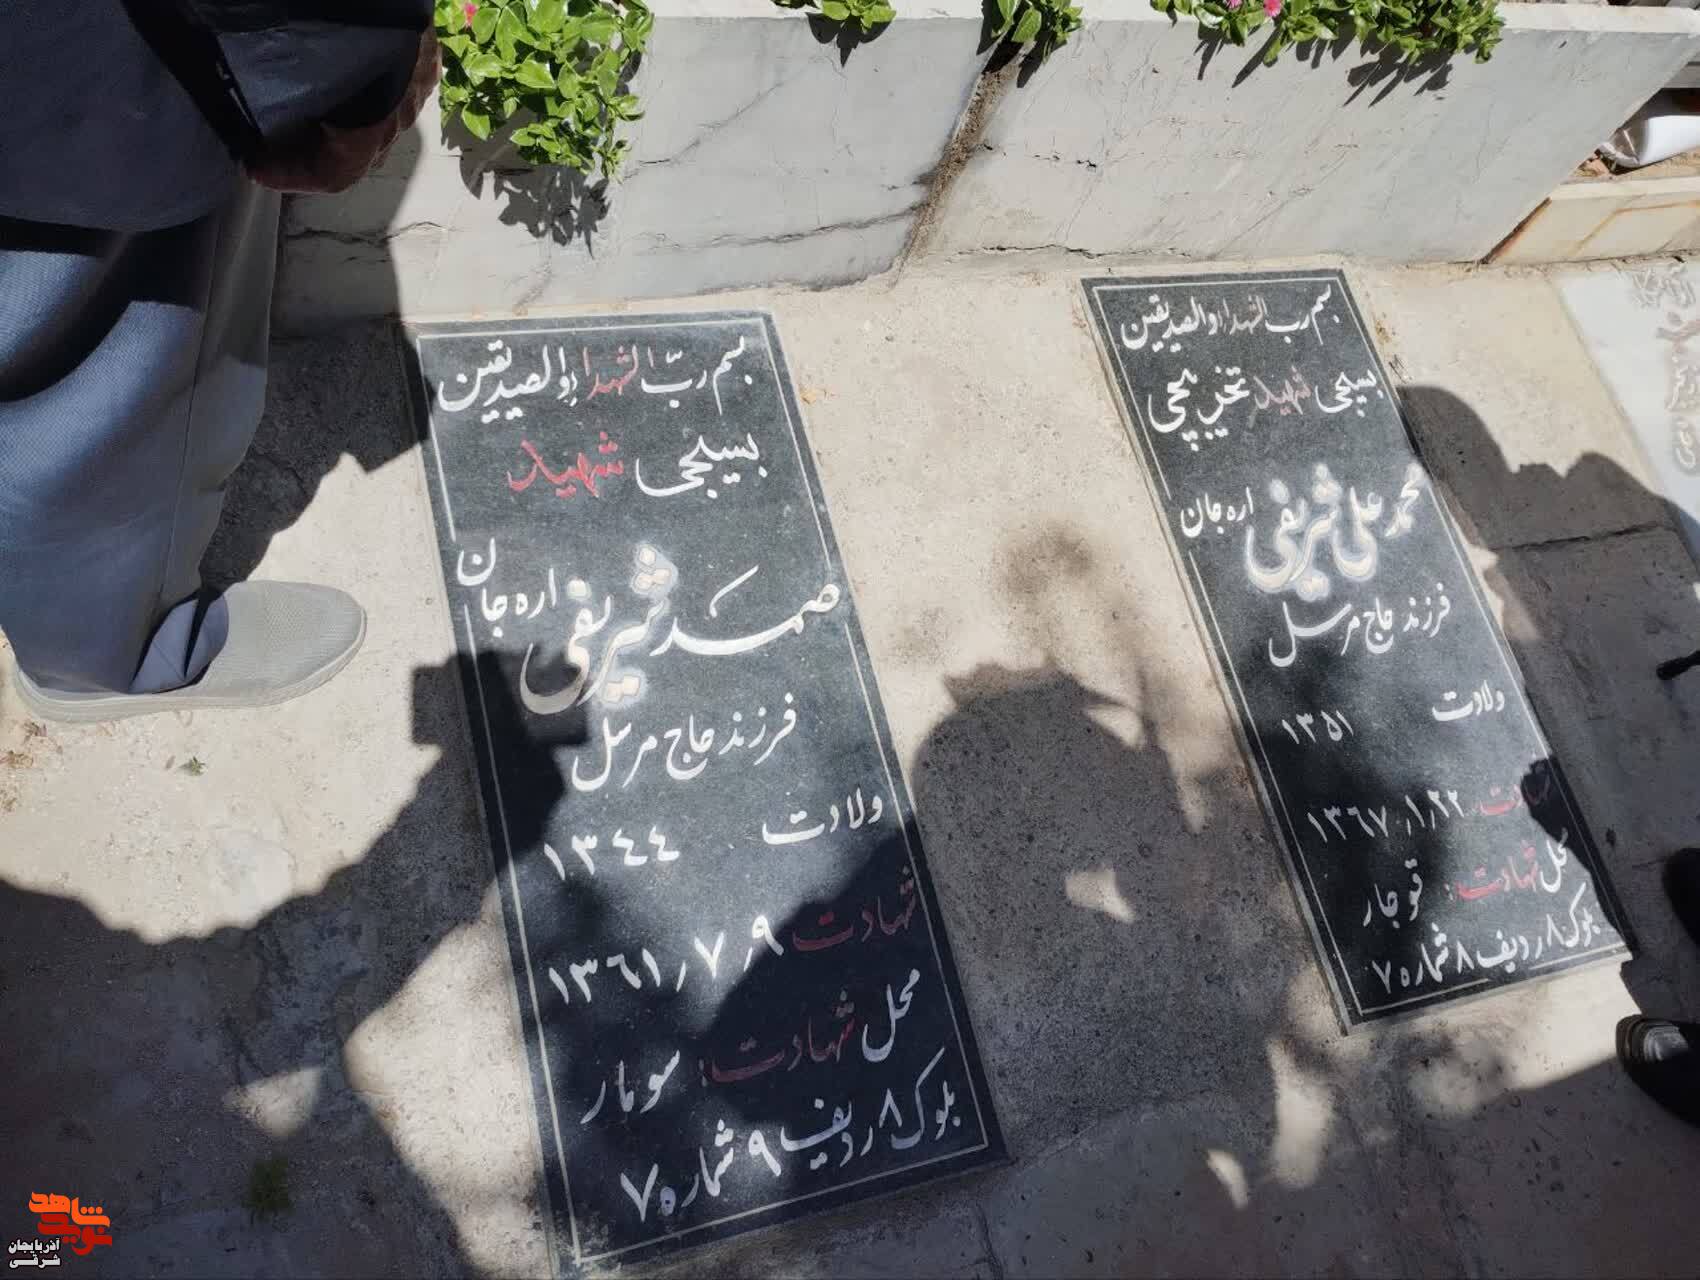 بسم رب الشهداء والصدیقین
بسیجی شهید تخریبچی
محمد علی شریفی اره جان
فرزند حاج مرسل
ولادت ۱۳۵۱
شهادت ۱۳۶۷/۱/۲۲
محل شهادت: قوجار
بلوک ۸ ردیف ۸ شماره ۷
بسم ربّ الشهداءِ والصدیقین
بسیجی شهید
صمد شریفی اره جان
فرزند حاج مرسل
ولادت ۱۳٤٤
شهادت ۱۳٦۱/۷/۹
محل شهادت: سومار
بلوک ۸ ردیف ۹ شماره ۷
نوید شاهد
آذربایجان
شرقی